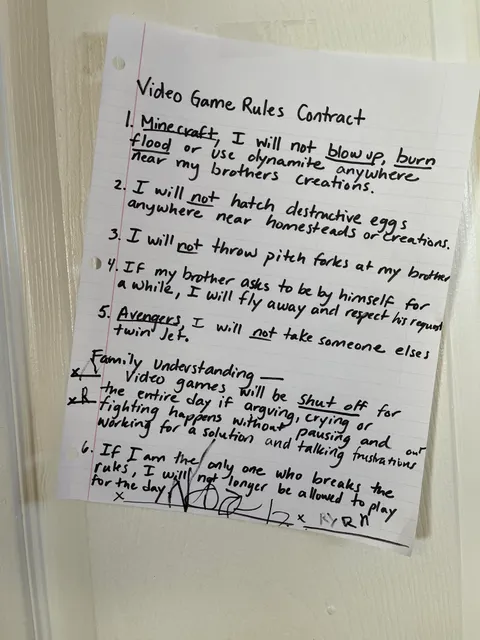 Video Game Rules Contract
1. Minecraft, I will not blow up, burn
flood or use dynamite anywhere
near my brothers creations.
2. I will not hatch destructive eggs
anywhere near homesteads or creations.
3. I will not throw pitch forks at my brother
4. If my brother asks to be by himself for
a while, I will fly away and respect his request
5. Avengers, I will not take someone elses
twin jet.
Family Understanding —
x A Video games will be shut off for
x R the entire day if arguing, crying or
fighting happens without pausing and
working for a solution and talking out frustrations
6. If I am the only one who breaks the
rules, I will not longer be allowed to play
for the day
x x RYRN